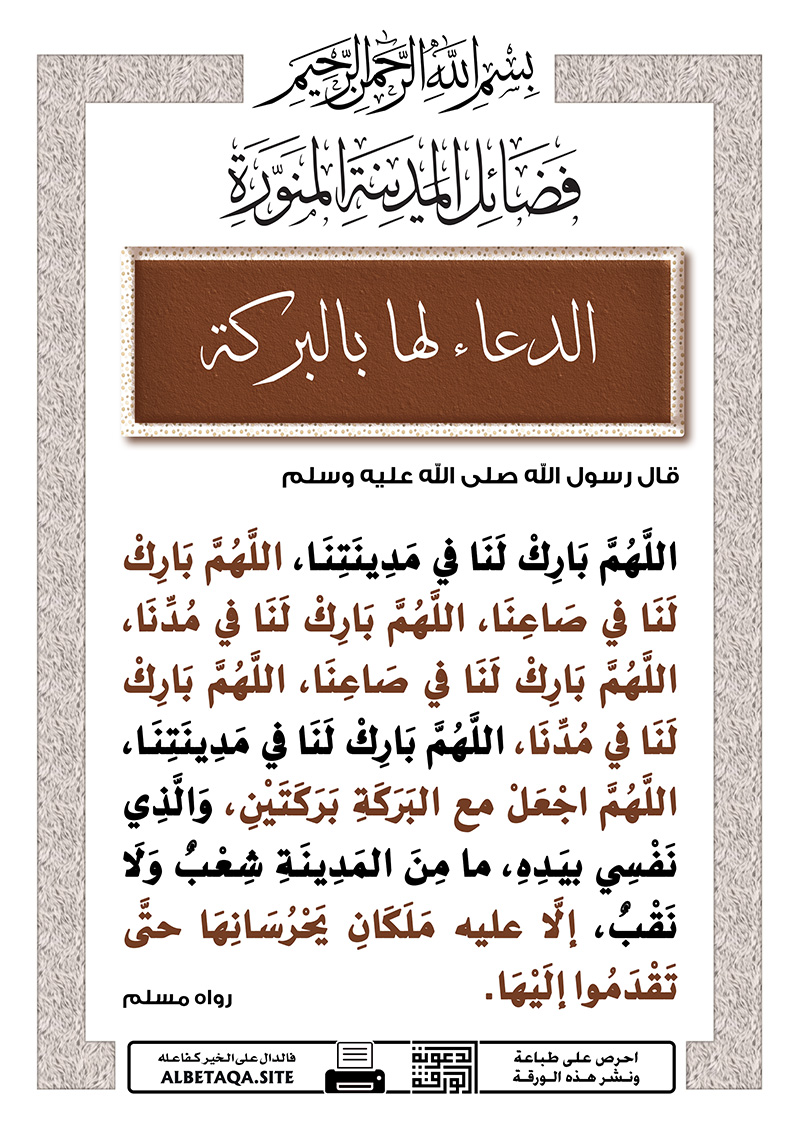 بِسْمِ اللَّهِ الرَّحْمَنِ الرَّحِيمِ
فَضَائِلُ المَدِينَةِ المُنَوَّرَةِ
الدعاء لها بالبركة
قال رسول الله صلى الله عليه وسلم
اللَّهُمَّ بَارِكْ لَنَا في مَدِينَتِنَا، اللَّهُمَّ بَارِكْ
لَنَا في صَاعِنَا، اللَّهُمَّ بَارِكْ لَنَا في مُدِّنَا،
اللَّهُمَّ بَارِكْ لَنَا في صَاعِنَا، اللَّهُمَّ بَارِكْ
لَنَا في مُدِّنَا، اللَّهُمَّ بَارِكْ لَنَا في مَدِينَتِنَا،
اللَّهُمَّ اجْعَلْ مع البَرَكَةِ بَرَكَتَيْنِ، وَالَّذِي
نَفْسِي بيَدِهِ، ما مِنَ المَدِينَةِ شِعْبٌ وَلَا
نَقْبٌ، إلَّا عليه مَلَكَانِ يَحْرُسَانِهَا حتَّى
تَقْدَمُوا إلَيْهَا.
رواه مسلم
احرص على طباعة
ونشر هذه الورقة
الورقة الدعوية
فالدال على الخير كفاعله
ALBETAQA.SITE